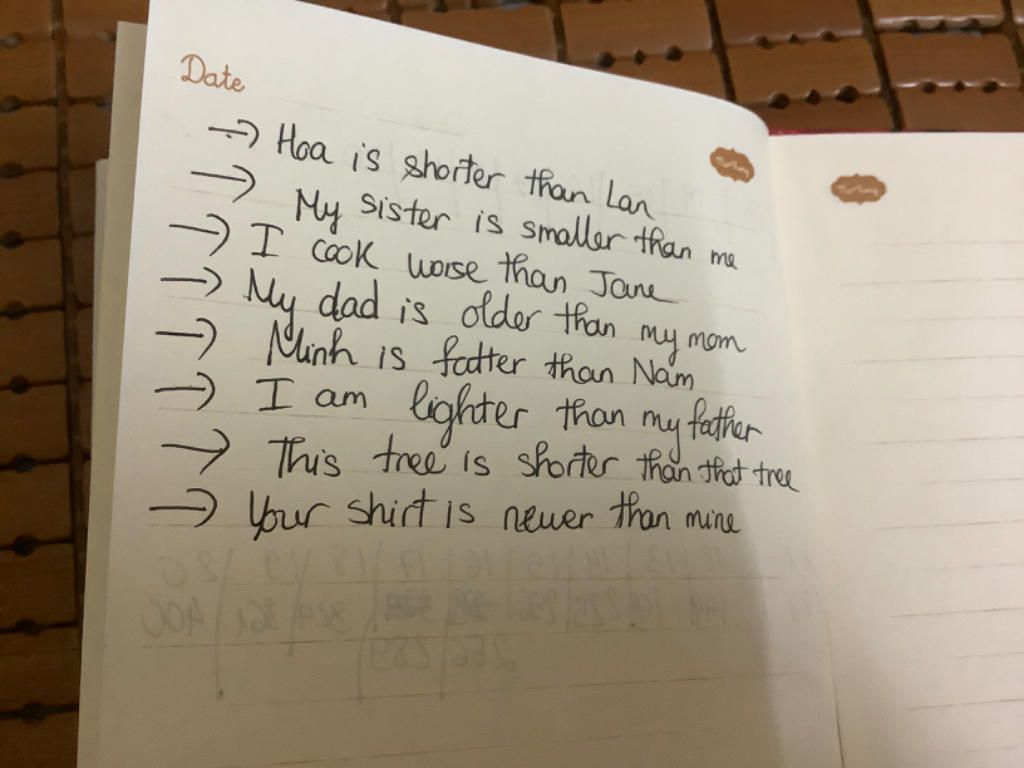 Date
→ Hoa is shorter than Lan
→ My sister is smaller than me
→ I cook worse than Jane
→ My dad is older than my mom
→ Minh is fatter than Nam
→ I am lighter than my father
→ This tree is shorter than that tree
→ Your shirt is newer than mine